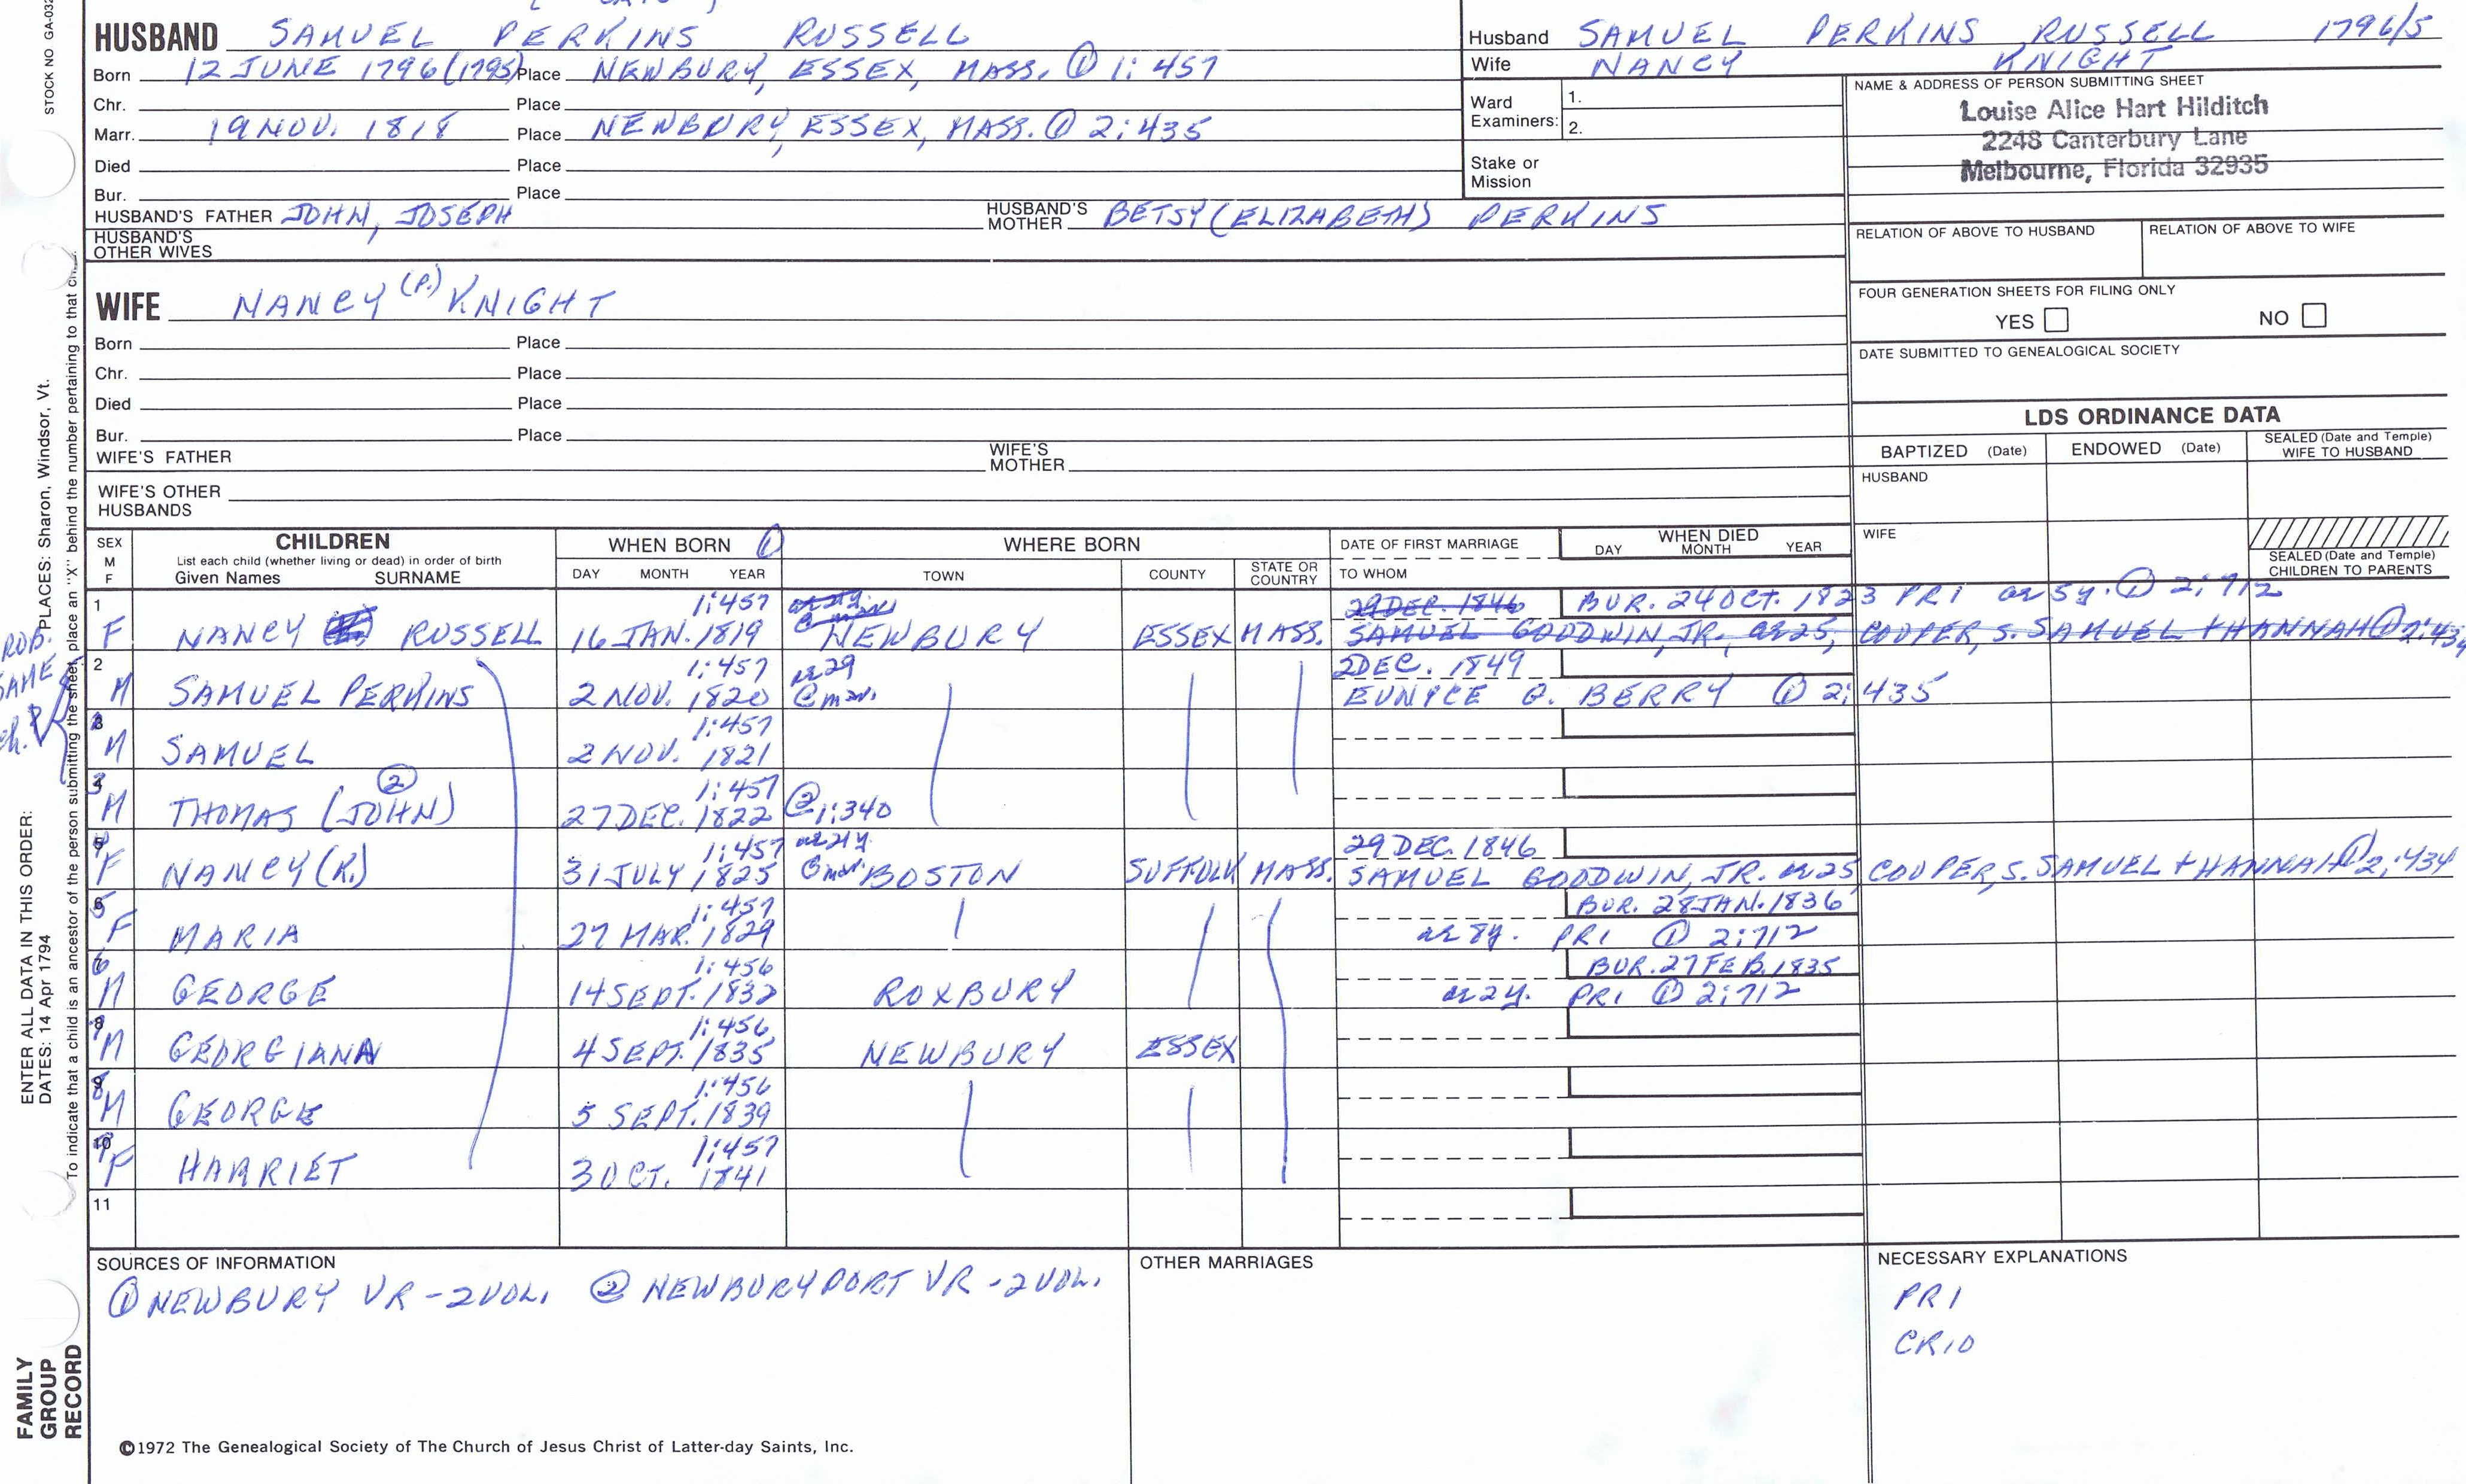 STOCK NO GA-032
HUSBAND SAMUEL PERKINS RUSSELL
Born 12 JUNE 1796 (1795) Place NEWBURY, ESSEX, MASS. ① 1:457
Chr. Place
Marr. 19 NOV. 1818 Place NEWBURY, ESSEX, MASS. ① 2:435
Died Place
Bur. Place
HUSBAND'S FATHER JOHN, JOSEPH HUSBAND'S MOTHER BETSY (ELIZABETH) PERKINS
HUSBAND'S OTHER WIVES
Husband SAMUEL PERKINS RUSSELL 1796/5
Wife NANCY KNIGHT
Ward Examiners: 1.
2.
Stake or Mission
NAME & ADDRESS OF PERSON SUBMITTING SHEET
Louise Alice Hart Hilditch
2248 Canterbury Lane
Melbourne, Florida 32935
RELATION OF ABOVE TO HUSBAND RELATION OF ABOVE TO WIFE
FOUR GENERATION SHEETS FOR FILING ONLY
YES NO
DATE SUBMITTED TO GENEALOGICAL SOCIETY
WIFE NANCY (P.) KNIGHT
Born Place
Chr. Place
Died Place
Bur. Place
WIFE'S FATHER WIFE'S MOTHER
WIFE'S OTHER HUSBANDS
LDS ORDINANCE DATA
BAPTIZED (Date) ENDOWED (Date) SEALED (Date and Temple) WIFE TO HUSBAND
HUSBAND
WIFE
SEALED (Date and Temple) CHILDREN TO PARENTS
SEX M F
CHILDREN
List each child (whether living or dead) in order of birth
Given Names SURNAME
WHEN BORN ①
DAY MONTH YEAR
WHERE BORN
TOWN COUNTY STATE OR COUNTRY
DATE OF FIRST MARRIAGE
TO WHOM
WHEN DIED
DAY MONTH YEAR
1 1:457 29 DEC. 1846 BUR. 24 OCT. 1823 PR1 ae 5y. ① 2:712
F NANCY RUSSELL 16 JAN. 1819 NEWBURY ESSEX MASS. SAMUEL GOODWIN, JR., ae 25, COOPER, S. SAMUEL + HANNAH ① 2:434
2 1:457 ae 29 2 DEC. 1849
M SAMUEL PERKINS 2 NOV. 1820 @ mar. EUNICE G. BERRY ① 2:435
3 1:457
M SAMUEL 2 NOV. 1821
3 ② 1:457 ②
M THOMAS (JOHN) 27 DEC. 1822 1:340
4 1:457 ae 21y. 29 DEC. 1846
F NANCY (R.) 31 JULY 1825 @ mar. BOSTON SUFFOLK MASS. SAMUEL GOODWIN, JR. ae 25, COOPER, S. SAMUEL + HANNAH ① 2:434
5 1:457 BUR. 28 JAN. 1836
F MARIA 27 MAR. 1829 ae 8y. PR1 ① 2:712
6 1:456 BUR. 27 FEB. 1835
M GEORGE 14 SEPT. 1832 ROXBURY ae 2y. PR1 ① 2:712
1:456
M GEORGIANA 4 SEPT. 1835 NEWBURY ESSEX
1:456
M GEORGE 5 SEPT. 1839
10 1:457
F HARRIET 3 OCT. 1841
11
SOURCES OF INFORMATION
① NEWBURY VR - 2 VOL. ② NEWBURYPORT VR - 2 VOL.
OTHER MARRIAGES
NECESSARY EXPLANATIONS
PR1
CR10
©1972 The Genealogical Society of The Church of Jesus Christ of Latter-day Saints, Inc.
ENTER ALL DATA IN THIS ORDER:
DATES: 14 Apr 1794
PLACES: Sharon, Windsor, Vt.
To indicate that a child is an ancestor of the person submitting the sheet, place an "X" behind the number pertaining to that
FAMILY
GROUP
RECORD